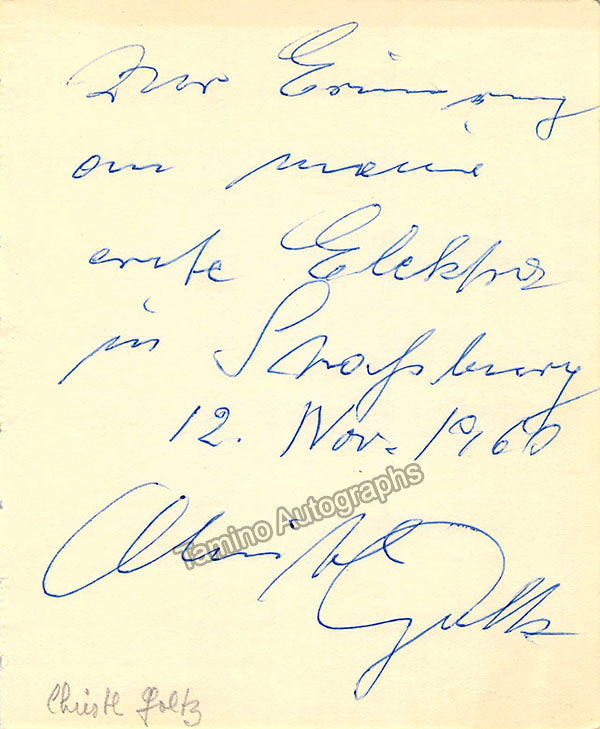 Zur Erinnerung
an meine
erste Elektra
in Straßburg
12. Nov. 1960
Christl Goltz
Tamino Autographs
Christl Goltz